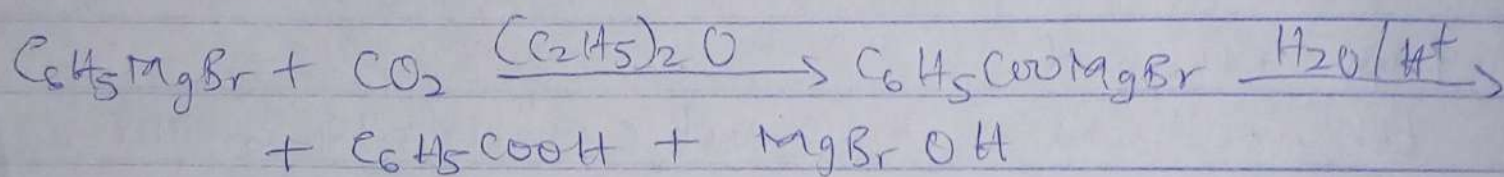 C6H5MgBr + CO2 (C2H5)2O → C6H5COOMgBr H2O/H+ →
+ C6H5COOH + MgBrOH